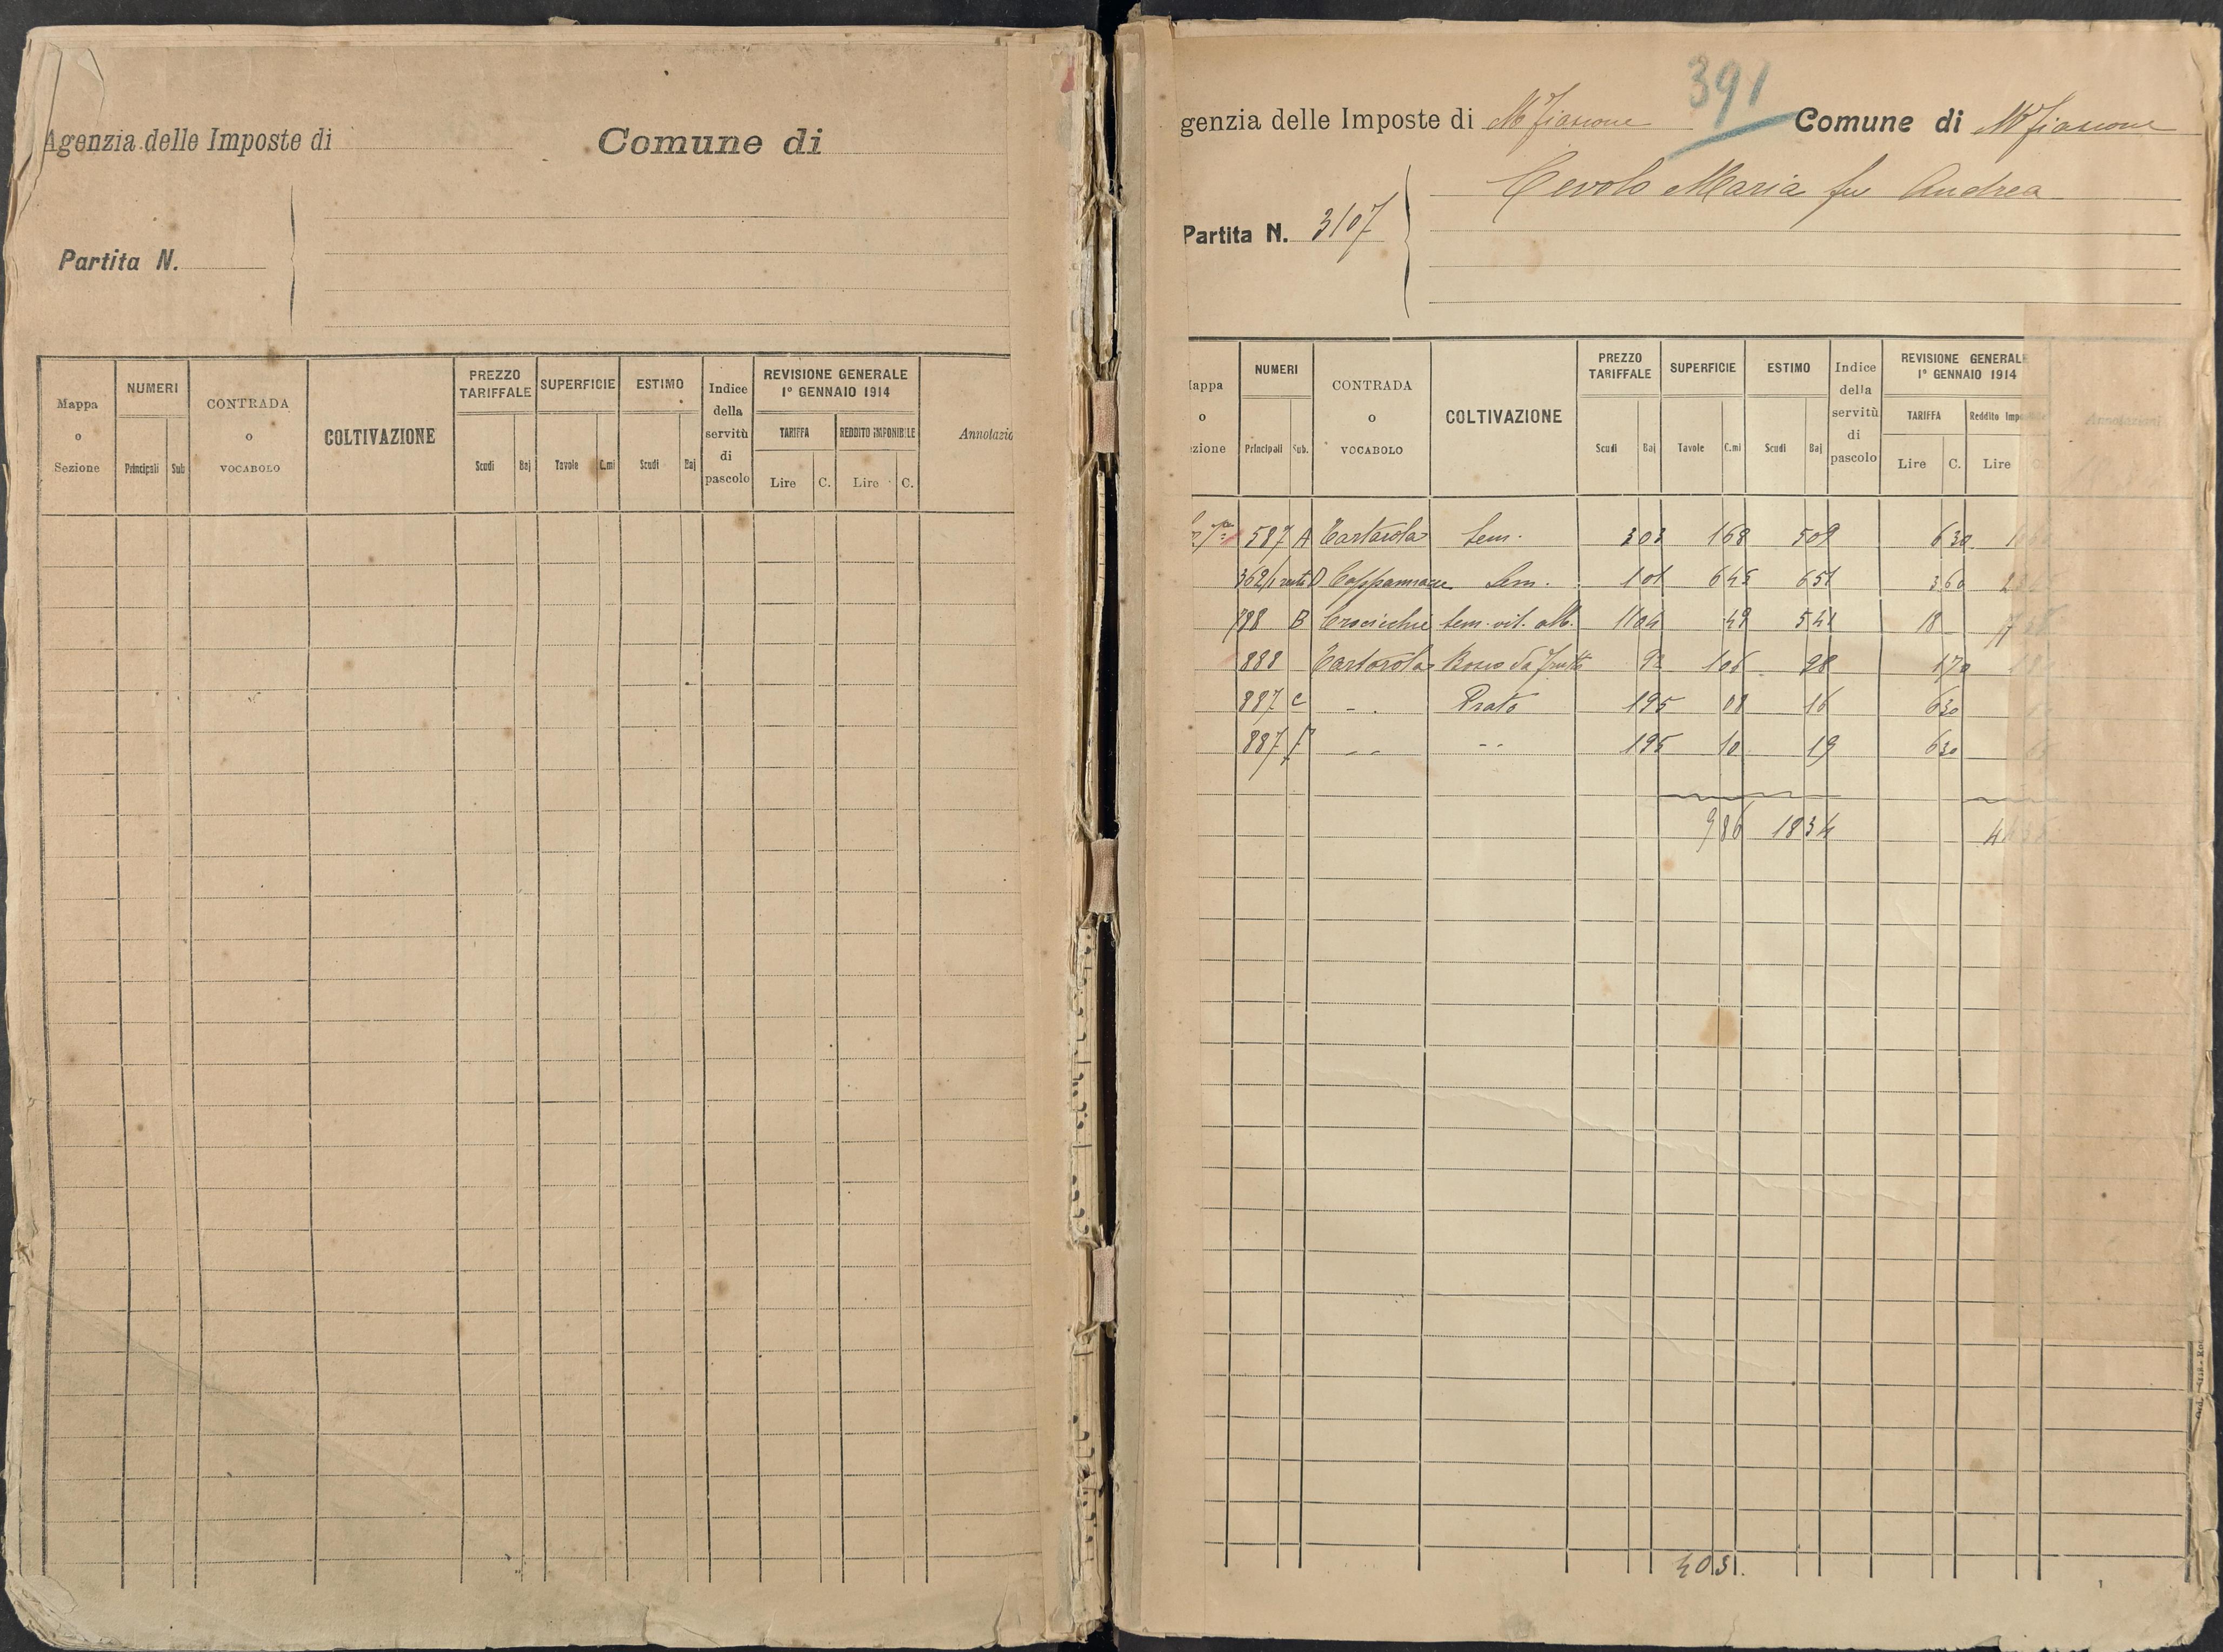 Agenzia delle Imposte di
Comune di
Partita N.
Mappa o Sezione
NUMERI
Principali Sub
CONTRADA o VOCABOLO
COLTIVAZIONE
PREZZO TARIFFALE
Scudi Baj
SUPERFICIE
Tavole C.mi
ESTIMO
Scudi Baj
Indice della servitù di pascolo
REVISIONE GENERALE
1° GENNAIO 1914
TARIFFA REDDITO IMPONIBILE
Lire C. Lire C.
Annotazio
391
genzia delle Imposte di Mfiascone Comune di Mfiascone
Cevolo Maria fu Andrea
Partita N. 3107
Mappa o zione
NUMERI
Principali Sub.
CONTRADA o VOCABOLO
COLTIVAZIONE
PREZZO TARIFFALE
Scudi Baj
SUPERFICIE
Tavole C.mi
ESTIMO
Scudi Baj
Indice della servitù di pascolo
REVISIONE GENERALE
1° GENNAIO 1914
TARIFFA Reddito Imp
Lire C. Lire C.
Annotazioni
587 A Cartarola Sem. 303 168 509 630
362/1 D Sem. 101 645 651 360
798 B Crocicchie Sem. vit. alb. 1104 49 541 18
888 Cartarola Bosco da frutto 92 106 98 170
887 C - . Prato 195 08 16 630
887 F - - - - 195 10 19 630
986 1834